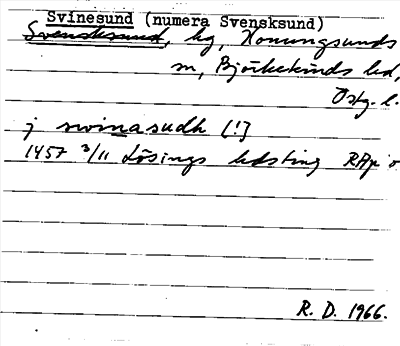 Svinesund (numera Svensksund)
Svensksund, hg, Konungsunds
sn, Björkekinds hd,
Östg. l.
j swinasudh [!]
1457 3/11 Lösings hdsting RAp o
R. D. 1966.